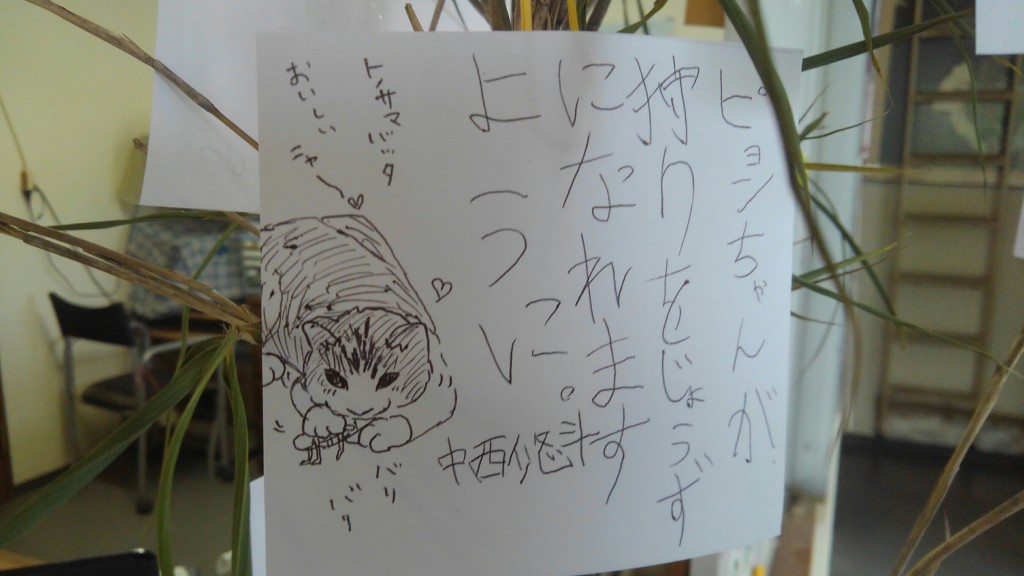 ピョンちゃんが
狩りをじょうず
になれます
ように。
中西悠斗
トノサマバッタ
おいしいニャー♡
バリ
バリ